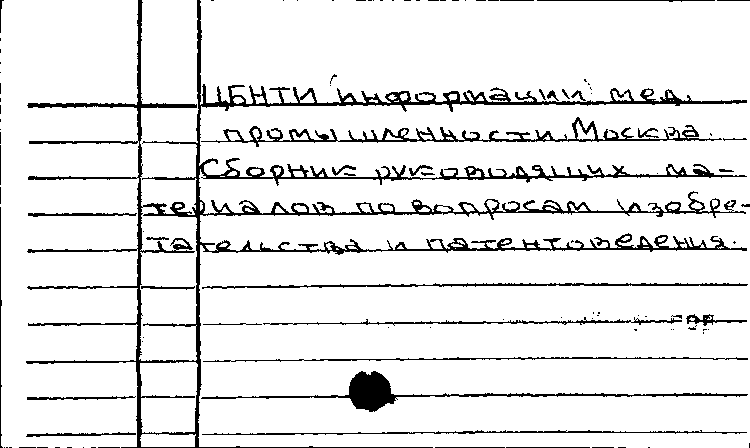 ЦБНТИ (информации) мед.
промышленности. Москва.
Сборник руководящих ма-
териалов по вопросам изобре-
тательства и патентоведения.